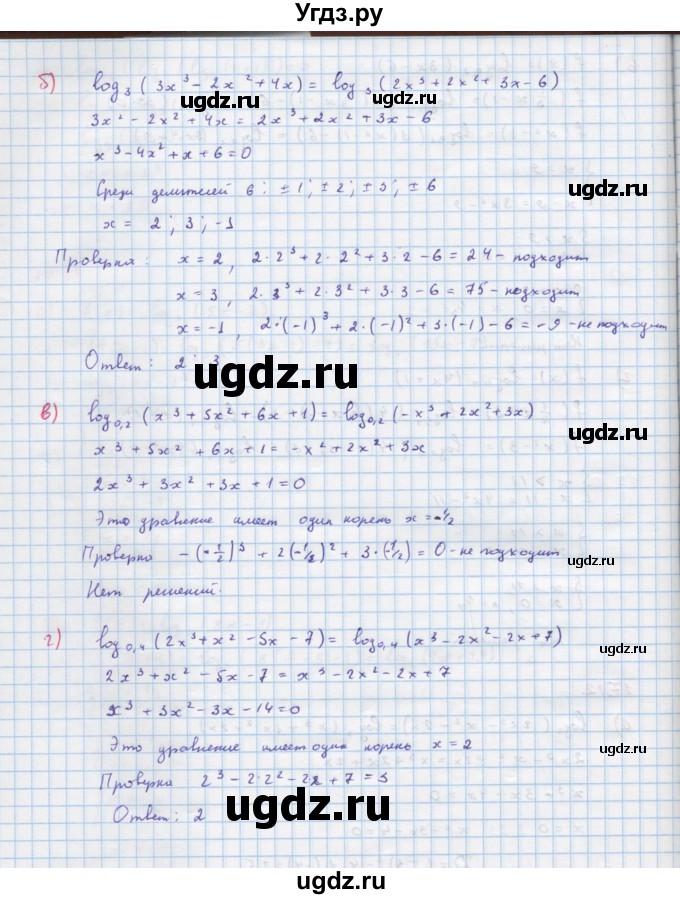 Угдз.ру
б) log₃ (3x³ - 2x² + 4x) = log₃ (2x³ + 2x² + 3x - 6)
ugdz.ru ugdz.ru
3x² - 2x² + 4x = 2x³ + 2x² + 3x - 6
x³ - 4x² + x + 6 = 0
Среди делителей 6: ±1; ±2; ±3; ±6
ugdz.ru
x = 2; 3; -1
Проверка: x = 2, 2·2³ + 2·2² + 3·2 - 6 = 24 - подходит
x = 3, 2·3³ + 2·3² + 3·3 - 6 = 75 - подходит
x = -1, 2·(-1)³ + 2·(-1)² + 3·(-1) - 6 = -9 - не подходит
Ответ: 2; 3
ugdz.ru
в) log₀,₂ (x³ + 5x² + 6x + 1) = log₀,₂ (-x³ + 2x² + 3x)
ugdz.ru
x³ + 5x² + 6x + 1 = -x² + 2x² + 3x
2x³ + 3x² + 3x + 1 = 0
Это уравнение имеет один корень x = -1/2
Проверка -(-1/2)³ + 2(-1/2)² + 3·(-1/2) = 0 - не подходит
ugdz.ru ugdz.ru
Нет решений.
г) log₀,₄ (2x³ + x² - 5x - 7) = log₀,₄ (x³ - 2x² - 2x + 7)
ugdz.ru
2x³ + x² - 5x - 7 = x³ - 2x² - 2x + 7
x³ + 3x² - 3x - 14 = 0
Это уравнение имеет один корень x = 2
ugdz.ru
Проверка 2³ - 2·2² - 2·2 + 7 = 3
Ответ: 2
ugdz.ru
ugdz.ru